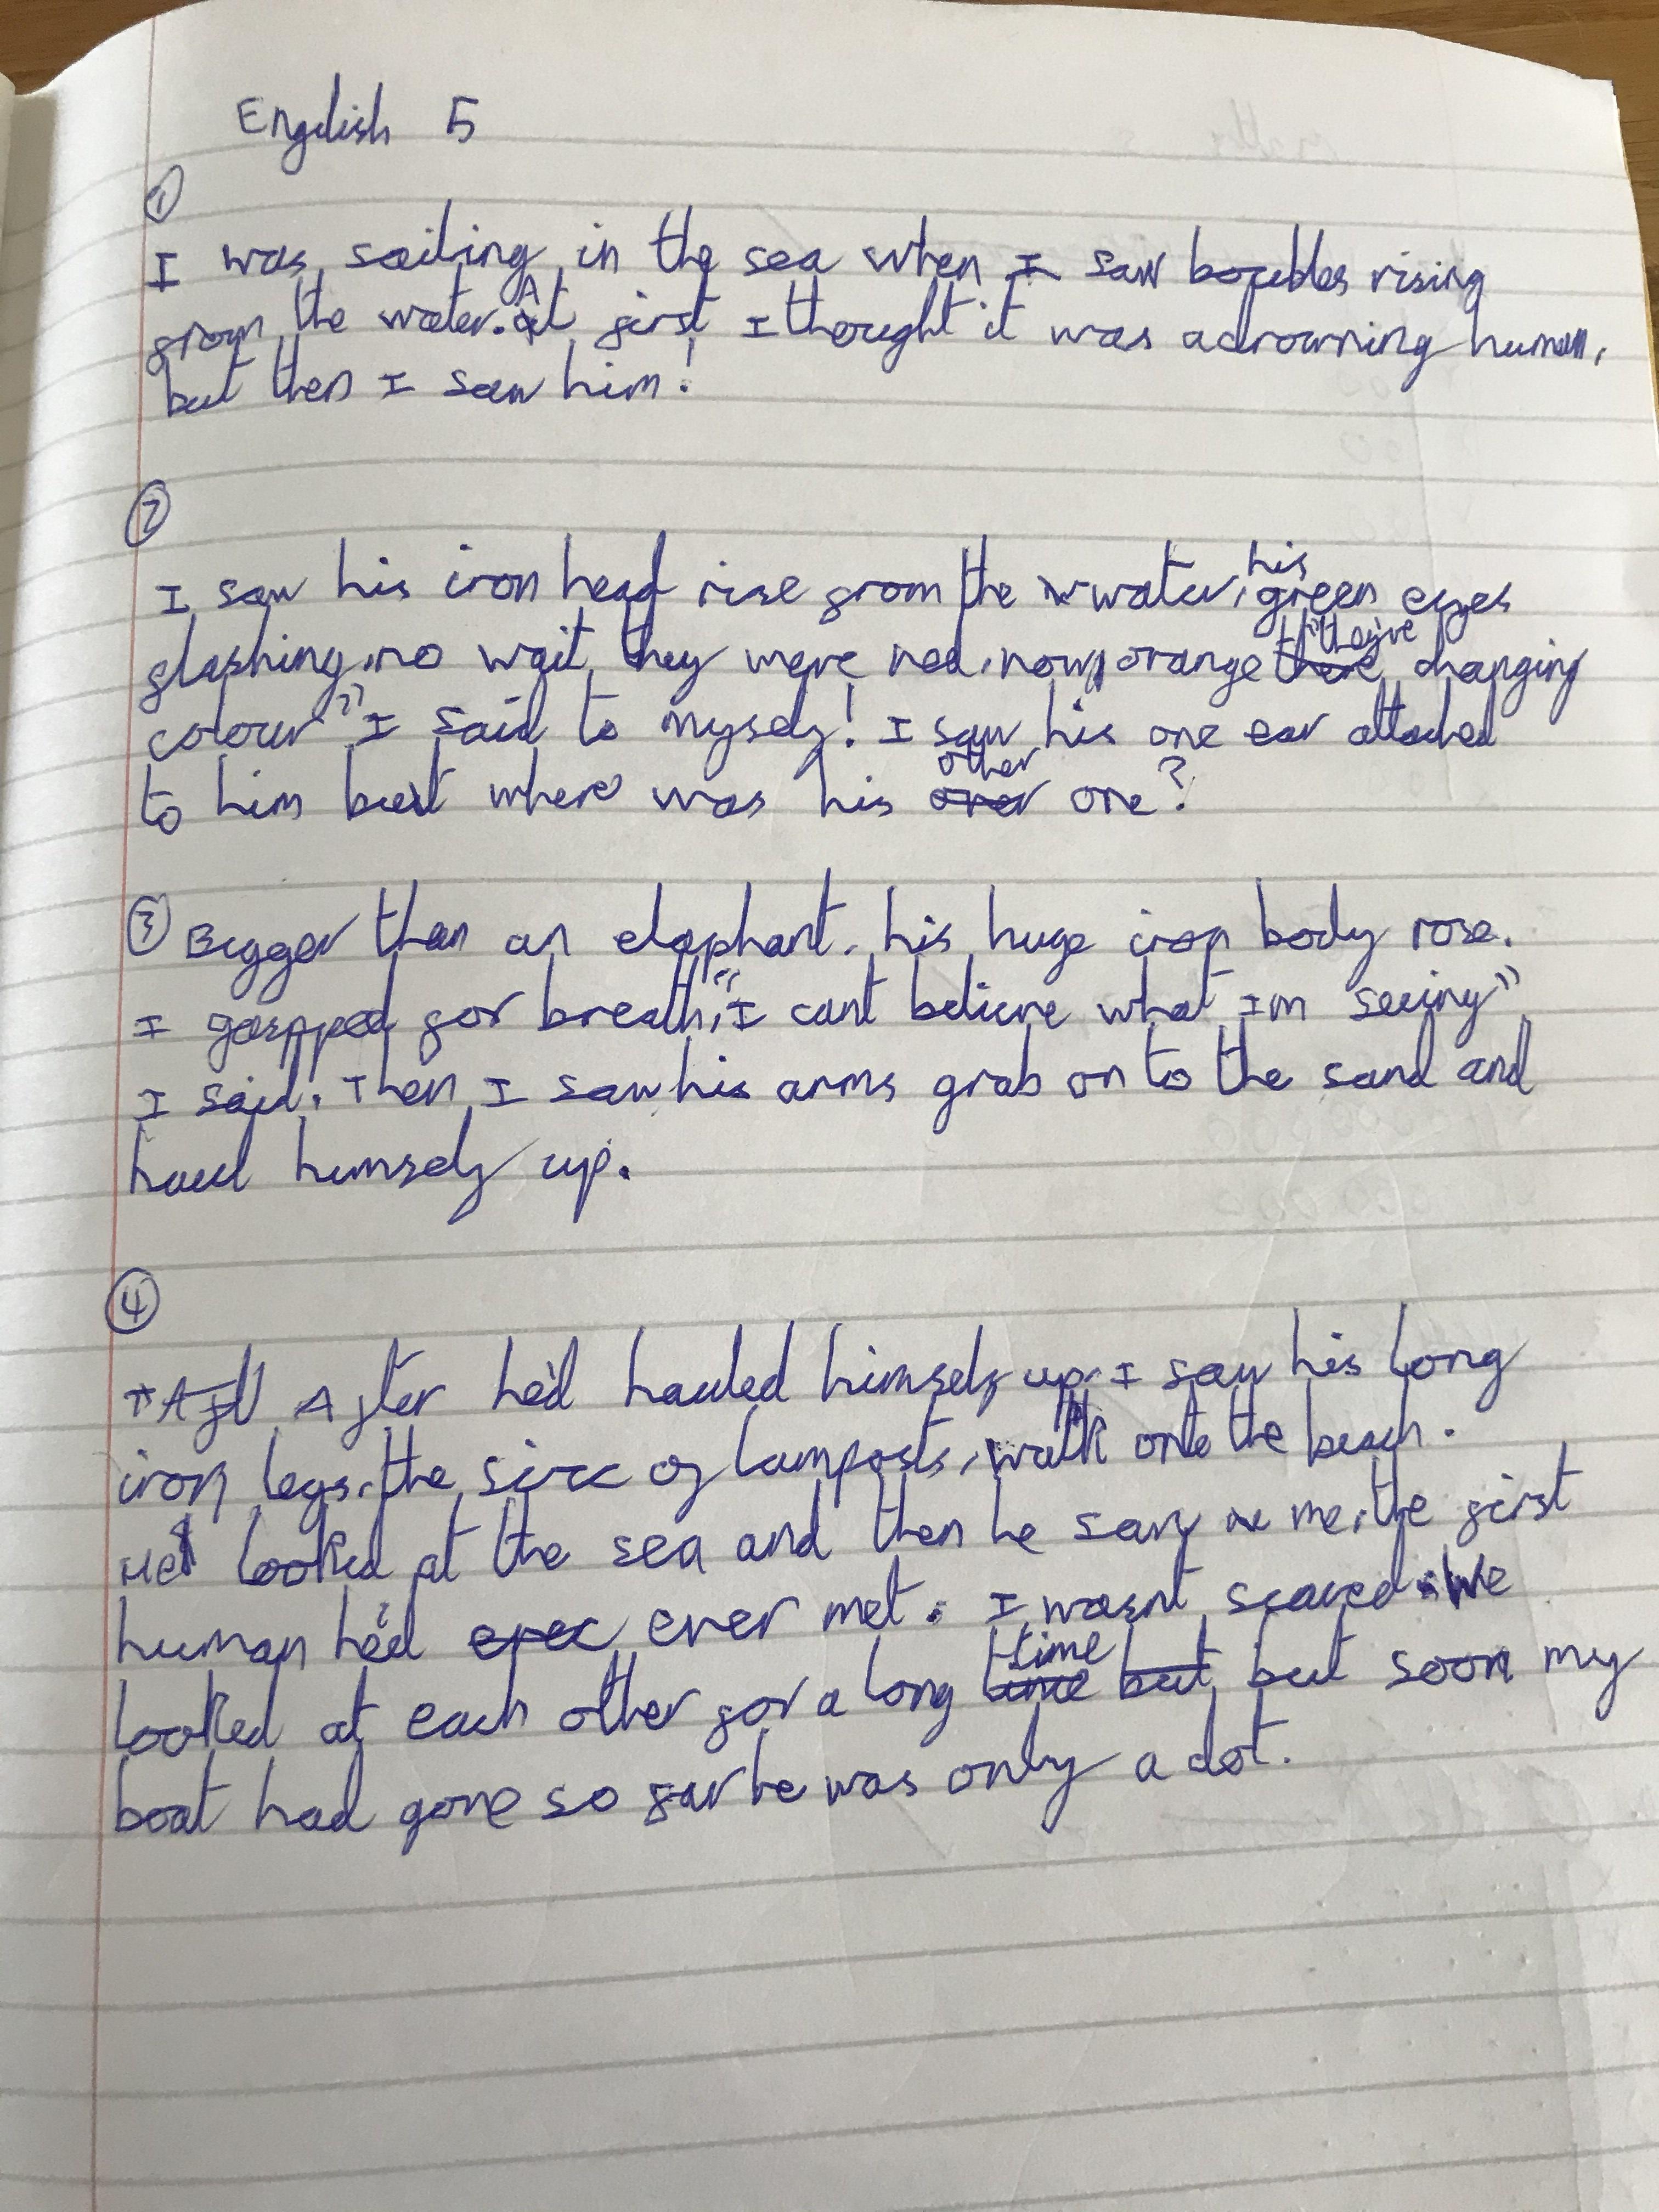 English 5
①
I was sailing in the sea when I saw boubbles rising
from the water. At first I thought it was a drowning human,
but then I saw him!
②
I saw his iron head rise from the water, his green eyes
flashing, no wait, they were red, now orange "they're changing
colour" I said to myself! I saw his one ear attached
to him but where was his other one?
③ Bigger than an elephant, his huge iron body rose.
I gaspped for breath, "I cant believe what Im seeing"
I said. Then I saw his arms grab on to the sand and
haul himself up.
④
After he'd hauled himself up, I saw his long
iron legs, the size of lamposts, walk onto the beach.
He looked at the sea and then he saw me, the first
human he'd ever met. I wasn't scared. We
looked at each other for a long time but soon my
boat had gone so far he was only a dot.